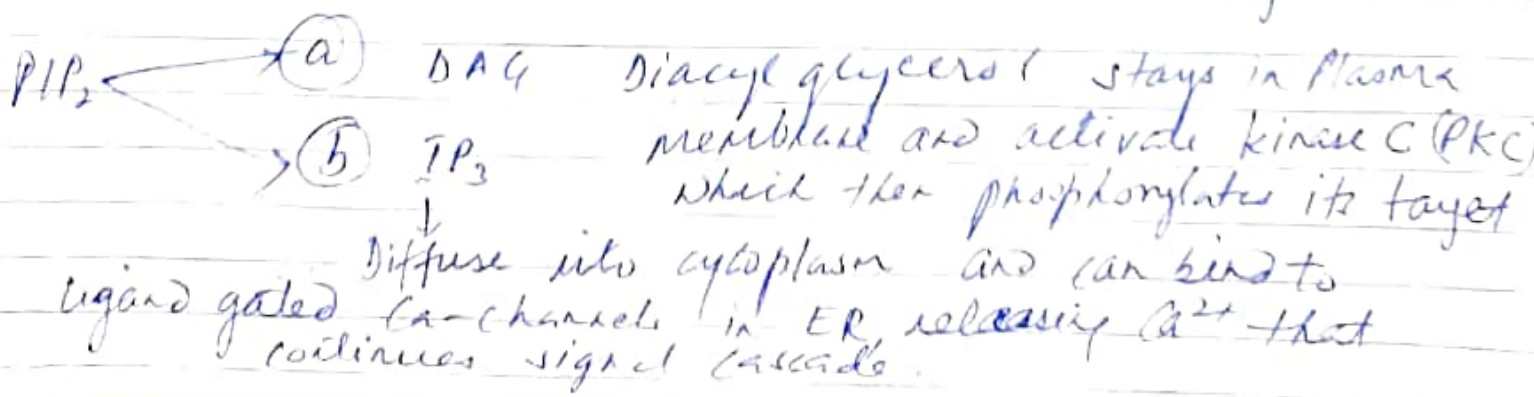 PIP₂ → (a) DAG Diacyl glycerol stays in Plasma
membrane and activate kinase C (PKC)
→ (b) IP₃ which then phosphorylates its target
↓
Diffuse into cytoplasm and can bind to
ligand gated Ca-channels in ER, releasing Ca²⁺ that
continues signal cascade.